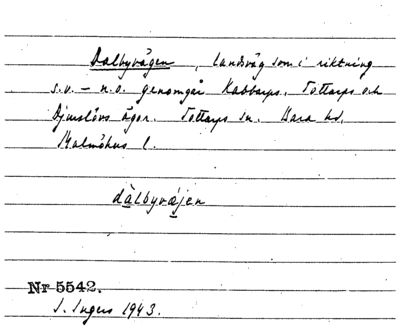 Dalbyvägen, landsväg som i riktning
s.v. – n.o. genomgår Kabbarps, Tottarps och
Djurslövs ägor. Tottarps sn. Bara hd.
Malmöhus l.
dàlbyvä̀jen
Nr 5542.
I. Ingers 1943.